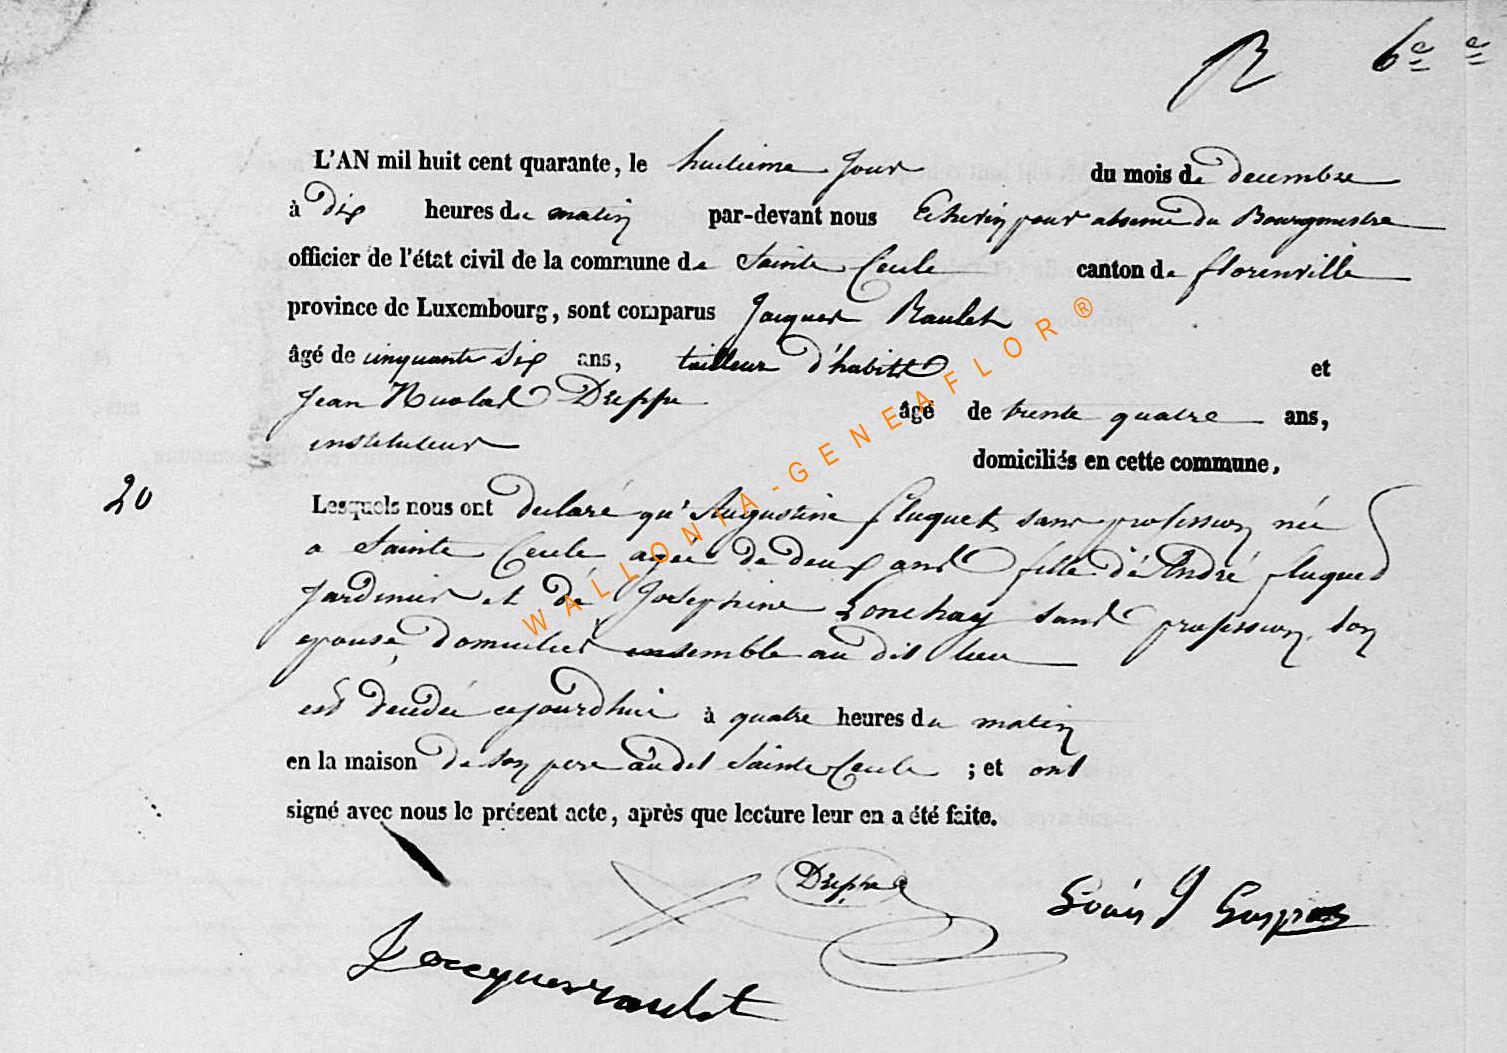 R 6e e
L'AN mil huit cent quarante, le huitieme jour du mois de decembre
à dix heures du matin par-devant nous Echevin pour absence du Bourgmestre
officier de l'état civil de la commune de Sainte Cecile canton de florenville
province de Luxembourg, sont comparus Jacques Raulet
âgé de cinquante six ans, tailleur d'habits et
Jean Nicolas Dreppe âgé de trente quatre ans,
instituteur domiciliés en cette commune,
20 Lesquels nous ont declaré qu'Augustine fluquet sans profession née
a Sainte Cecile agée de deux ans fille d'André fluquet
Jardinier et de Josephine Lonchay sans profession son
epouse domicilies ensemble au dit lieu
est décédée cejourdhui à quatre heures du matin
en la maison de son pere audit Sainte Cecile ; et ont
signé avec nous le présent acte, après que lecture leur en a été faite.
Dreppe Louis J Gaspar
Jacques raulet
WALLONIA-GENEAFLOR®